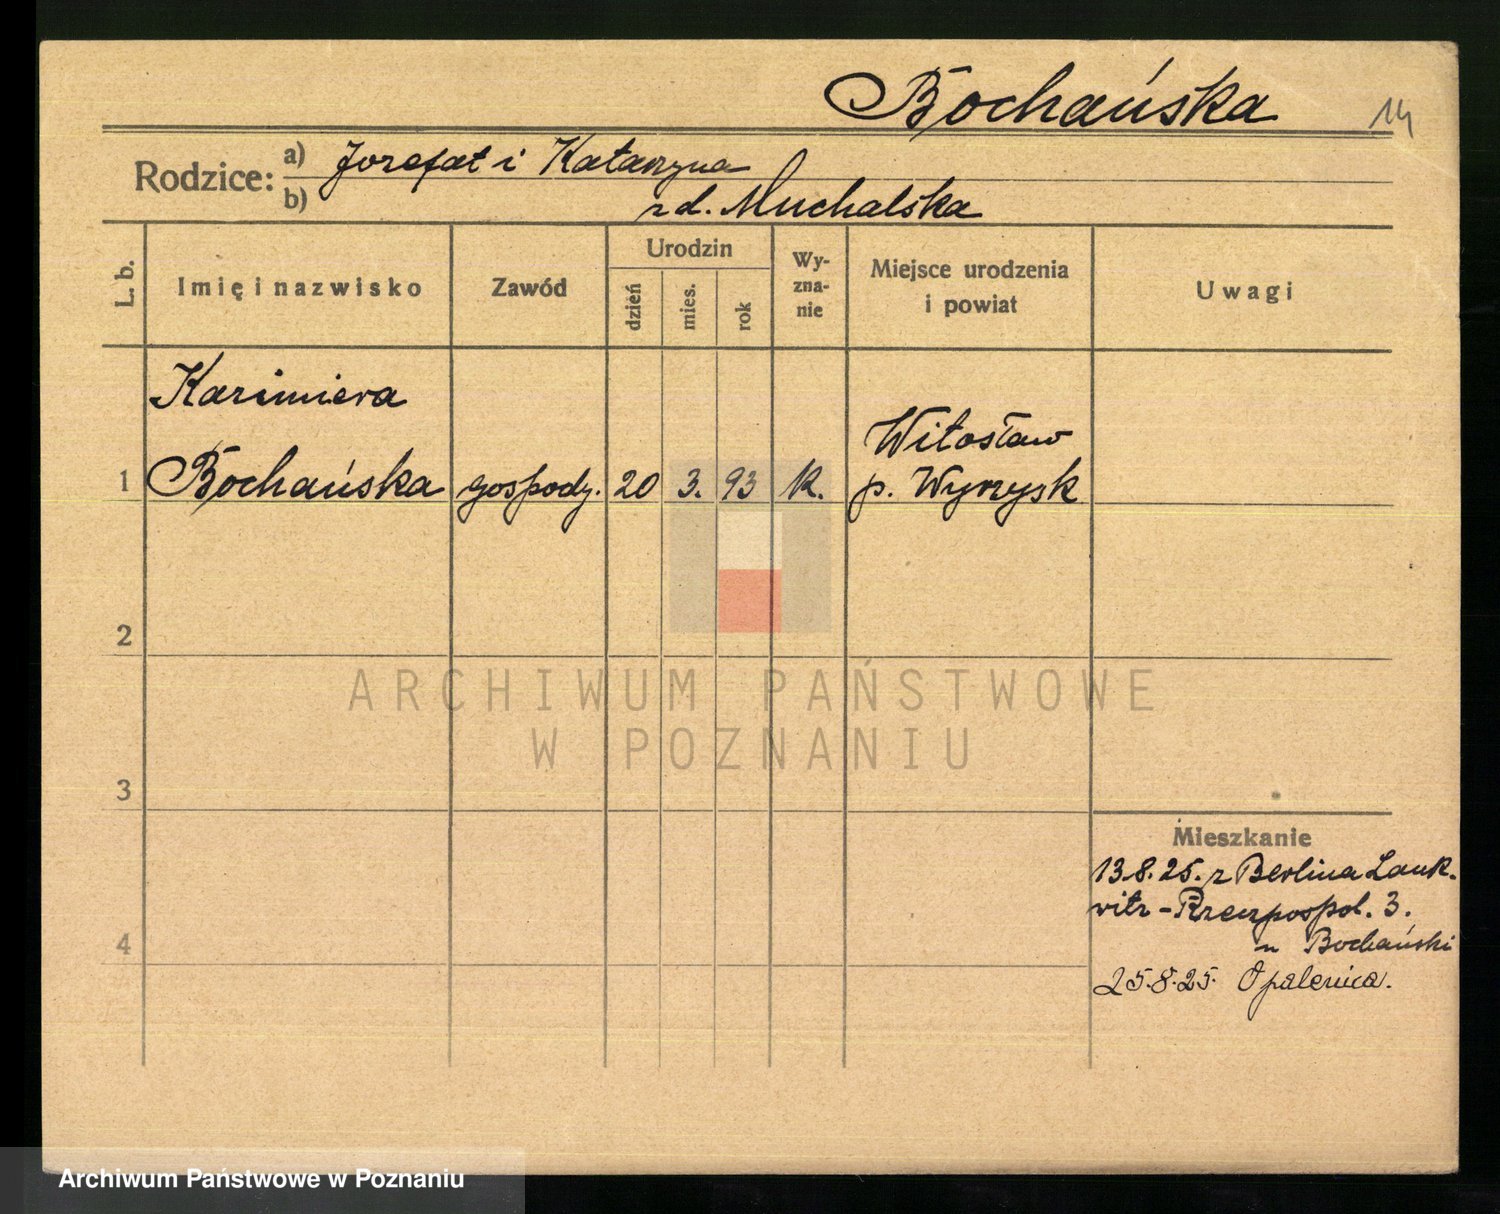 Bochańska
14
Rodzice: a) Jozefat i Katarzyna
b) zd. Muchalska
L. b. Imię i nazwisko Zawód Urodzin dzień mies. rok Wyznanie Miejsce urodzenia i powiat Uwagi
Kazimiera
1 Bochańska gospody. 20 3. 93 k. Witosław
p. Wyrzysk
2
ARCHIWUM PAŃSTWOWE
W POZNANIU
3
Mieszkanie
13.8.25. z Berlina Lank-
witz - Rzeczpospol. 3.
u Bochański
4
25.8.25. Opalenica.
Archiwum Państwowe w Poznaniu